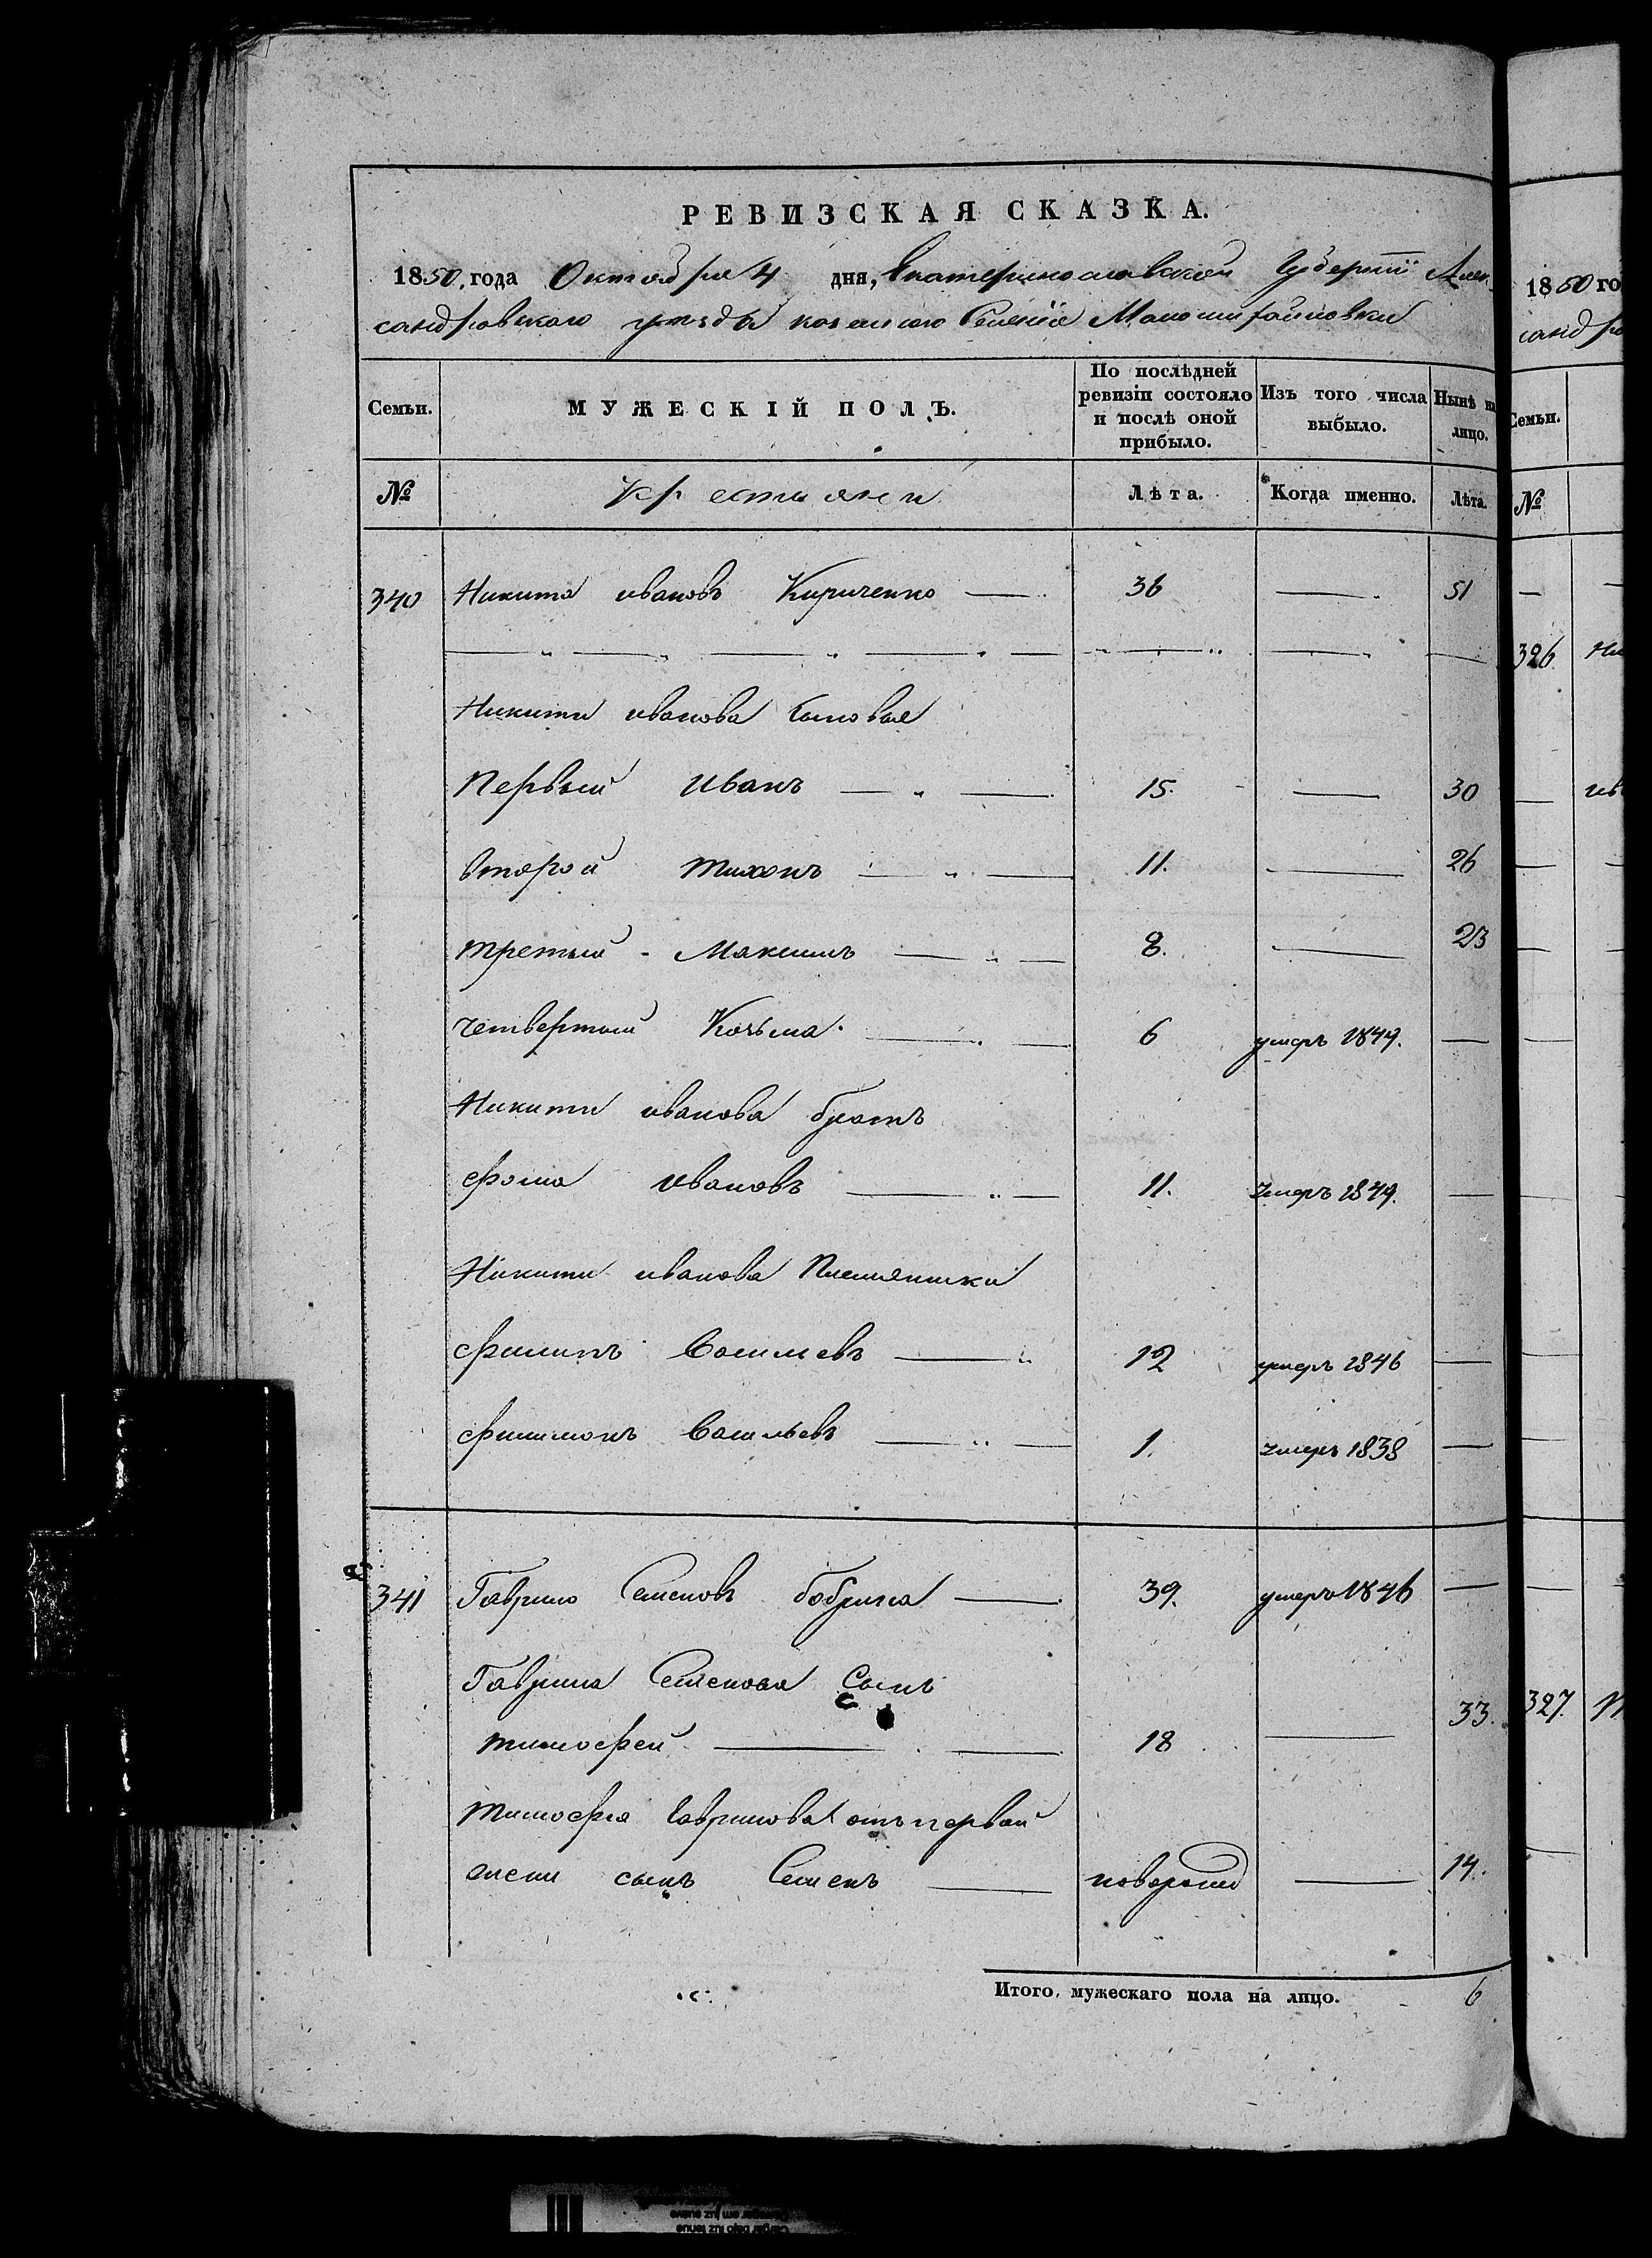 РЕВИЗСКАЯ СКАЗКА.
1850, года Октября 4 дня, Екатеринославской Губернiи Алек-
сандровского уезда казенного Селенiя Маломихайловки
Семьи. МУЖЕСКIЙ ПОЛЪ. По послѣдней ревизiи состояло и послѣ оной прибыло. Изъ того числа выбыло. Нынѣ на лицо.
№ Крестьяне Лѣта. Когда именно. Лѣта.
340 Никита Ивановъ Кириченко 36 — 51
Никиты Иванова Сыновья
Первый Иванъ 15. — 30
Второй Тихонъ 11. — 26
третий Максимъ 8. — 23
четвертый Козьма 6 умеръ 1849. —
Никиты Иванова братъ
Фома Ивановъ 11. умеръ 1849. —
Никиты Иванова Племянники
Филипъ Васильевъ 12 умеръ 1846 —
Филимонъ Васильевъ 1. умеръ 1838 —
341 Гаврило Семеновъ Бобрика 39. умеръ 1846 —
Гаврила Семенова Сынъ
Тимофей 18 — 33.
Тимофея Гаврилова отъ первой
жены сынъ Семенъ новорожд — 14.
Итого, мужескаго пола на лицо. 6
1850 го
санд
Семьи.
№
326
327.